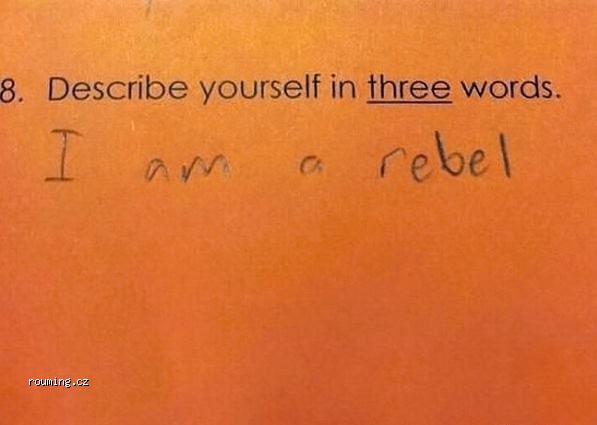 8. Describe yourself in three words.
I am a rebel
rouming.cz